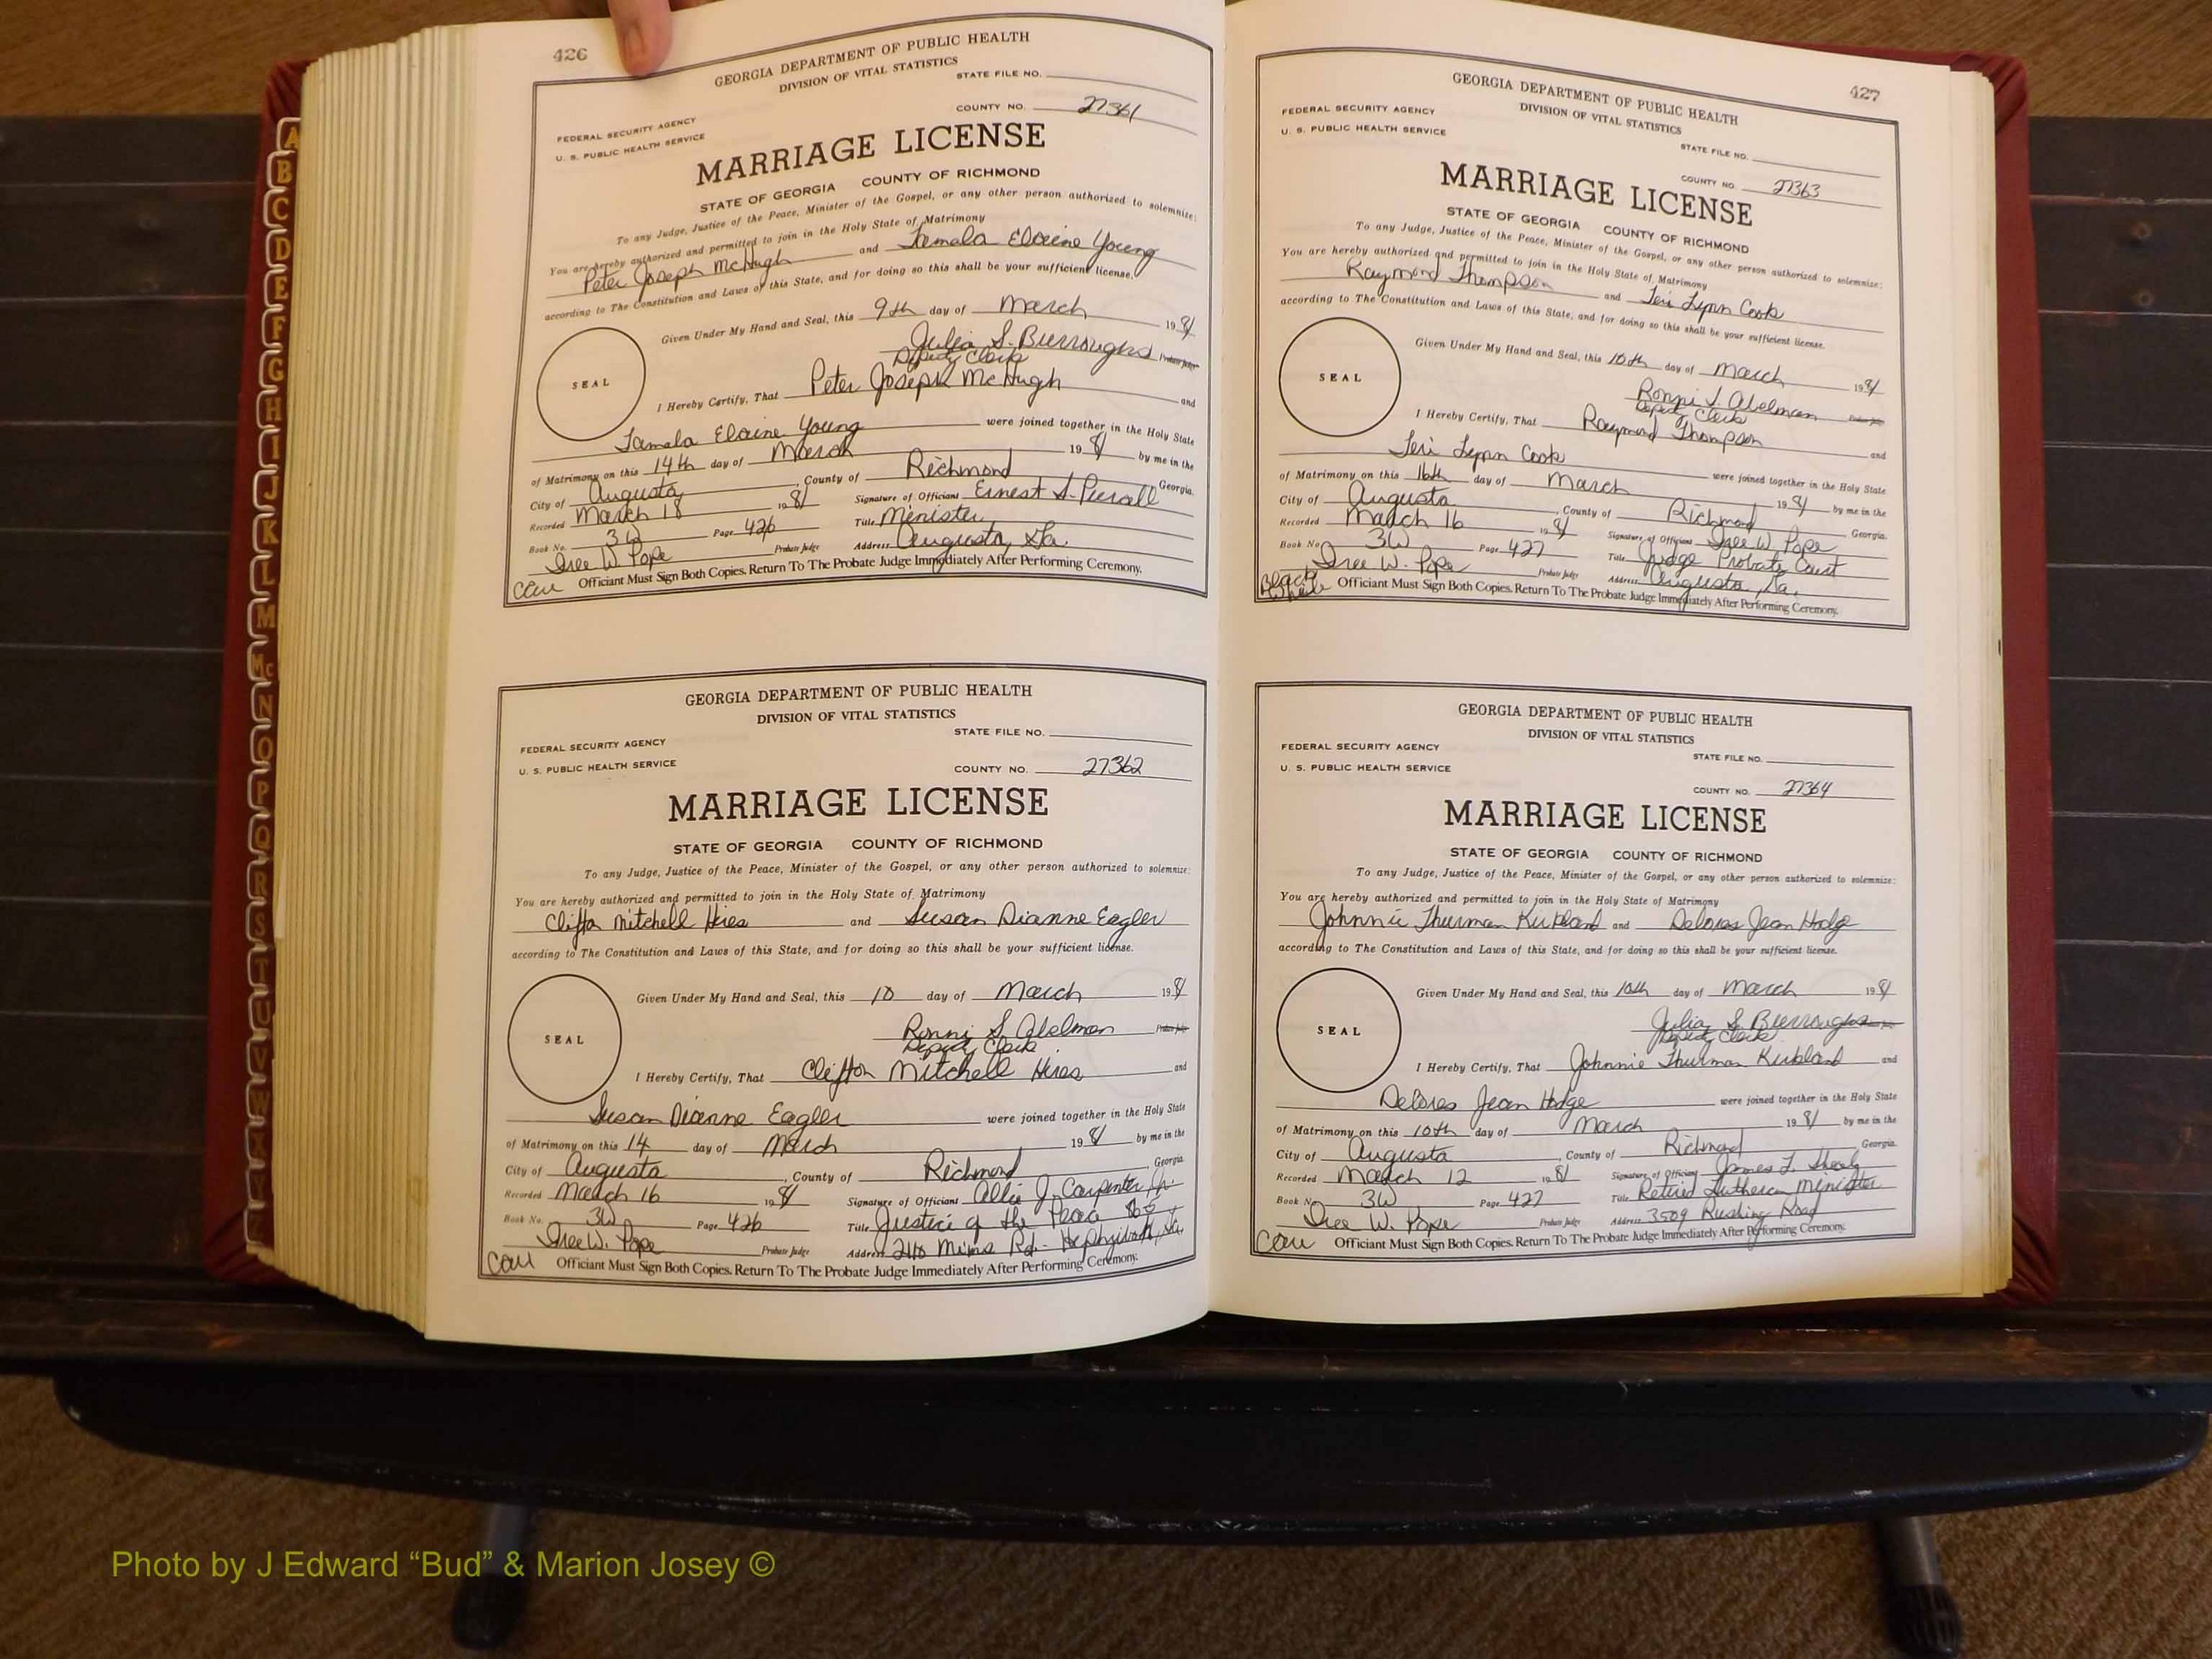 A
B
C
D
E
F
G
H
I
J
K
L
M
Mc
N
O
P
Q
R
S
T
U
V
W
426
GEORGIA DEPARTMENT OF PUBLIC HEALTH
DIVISION OF VITAL STATISTICS
STATE FILE NO.
FEDERAL SECURITY AGENCY
U. S. PUBLIC HEALTH SERVICE
COUNTY NO. 27361
MARRIAGE LICENSE
STATE OF GEORGIA COUNTY OF RICHMOND
To any Judge, Justice of the Peace, Minister of the Gospel, or any other person authorized to solemnize:
You are hereby authorized and permitted to join in the Holy State of Matrimony
Peter Joseph McHugh and Tamala Elaine Young
according to The Constitution and Laws of this State, and for doing so this shall be your sufficient license.
Given Under My Hand and Seal, this 9th day of March 1981
Julia S. Burroughs Probate Judge
Deputy Clerk
SEAL
I Hereby Certify, That Peter Joseph McHugh and
Tamala Elaine Young were joined together in the Holy State
of Matrimony on this 14th day of March 1981 by me in the
City of Augusta, County of Richmond Georgia.
Recorded March 18 1981 Signature of Officiant Ernest S.
Book No. 3W Page 426 Title Minister
Iree W. Pope Probate Judge Address Augusta, Ga.
Cau Officiant Must Sign Both Copies. Return To The Probate Judge Immediately After Performing Ceremony.
GEORGIA DEPARTMENT OF PUBLIC HEALTH
DIVISION OF VITAL STATISTICS
STATE FILE NO.
FEDERAL SECURITY AGENCY
U. S. PUBLIC HEALTH SERVICE
COUNTY NO. 27362
MARRIAGE LICENSE
STATE OF GEORGIA COUNTY OF RICHMOND
To any Judge, Justice of the Peace, Minister of the Gospel, or any other person authorized to solemnize:
You are hereby authorized and permitted to join in the Holy State of Matrimony
Clifton Mitchell Hires and Susan Dianne Eagler
according to The Constitution and Laws of this State, and for doing so this shall be your sufficient license.
Given Under My Hand and Seal, this 10 day of March 1981
Ronni S. Abelman Probate Judge
Deputy Clerk
SEAL
I Hereby Certify, That Clifton Mitchell Hires and
Susan Dianne Eagler were joined together in the Holy State
of Matrimony on this 14 day of March 1981 by me in the
City of Augusta, County of Richmond, Georgia
Recorded March 16 1981 Signature of Officiant Ollie J. Carpenter, Jr.
Book No. 3W Page 426 Title Justice of the Peace
Iree W. Pope Probate Judge Address 2110 Mims Rd. Hephzibah, Ga.
Cau Officiant Must Sign Both Copies. Return To The Probate Judge Immediately After Performing Ceremony.
427
GEORGIA DEPARTMENT OF PUBLIC HEALTH
DIVISION OF VITAL STATISTICS
FEDERAL SECURITY AGENCY
U. S. PUBLIC HEALTH SERVICE
STATE FILE NO.
COUNTY NO. 27363
MARRIAGE LICENSE
STATE OF GEORGIA COUNTY OF RICHMOND
To any Judge, Justice of the Peace, Minister of the Gospel, or any other person authorized to solemnize:
You are hereby authorized and permitted to join in the Holy State of Matrimony
Raymond Thompson and Teri Lynn Cook
according to The Constitution and Laws of this State, and for doing so this shall be your sufficient license.
Given Under My Hand and Seal, this 10th day of March 1981
Ronni S. Abelman Probate Judge
Deputy Clerk
SEAL
I Hereby Certify, That Raymond Thompson and
Teri Lynn Cook were joined together in the Holy State
of Matrimony on this 16th day of March 1981 by me in the
City of Augusta, County of Richmond Georgia.
Recorded March 16 1981 Signature of Officiant Iree W. Pope
Book No. 3W Page 427 Title Judge Probate Court
Iree W. Pope Probate Judge Address Augusta, Ga.
Black
White Officiant Must Sign Both Copies. Return To The Probate Judge Immediately After Performing Ceremony.
GEORGIA DEPARTMENT OF PUBLIC HEALTH
DIVISION OF VITAL STATISTICS
FEDERAL SECURITY AGENCY
U. S. PUBLIC HEALTH SERVICE
STATE FILE NO.
COUNTY NO. 27364
MARRIAGE LICENSE
STATE OF GEORGIA COUNTY OF RICHMOND
To any Judge, Justice of the Peace, Minister of the Gospel, or any other person authorized to solemnize:
You are hereby authorized and permitted to join in the Holy State of Matrimony
Johnnie Thurman Kirkland and Delores Jean Hodge
according to The Constitution and Laws of this State, and for doing so this shall be your sufficient license.
Given Under My Hand and Seal, this 10th day of March 1981
Julia S. Burroughs
Deputy Clerk
SEAL
I Hereby Certify, That Johnnie Thurman Kirkland and
Delores Jean Hodge were joined together in the Holy State
of Matrimony on this 10th day of March 1981 by me in the
City of Augusta, County of Richmond, Georgia.
Recorded March 12 1981 Signature of Officiant James L.
Book No. 3W Page 427 Title Retired Lutheran Minister
Iree W. Pope Probate Judge Address 3509 Rushing Road
Cau Officiant Must Sign Both Copies. Return To The Probate Judge Immediately After Performing Ceremony.
Photo by J Edward “Bud” & Marion Josey ©